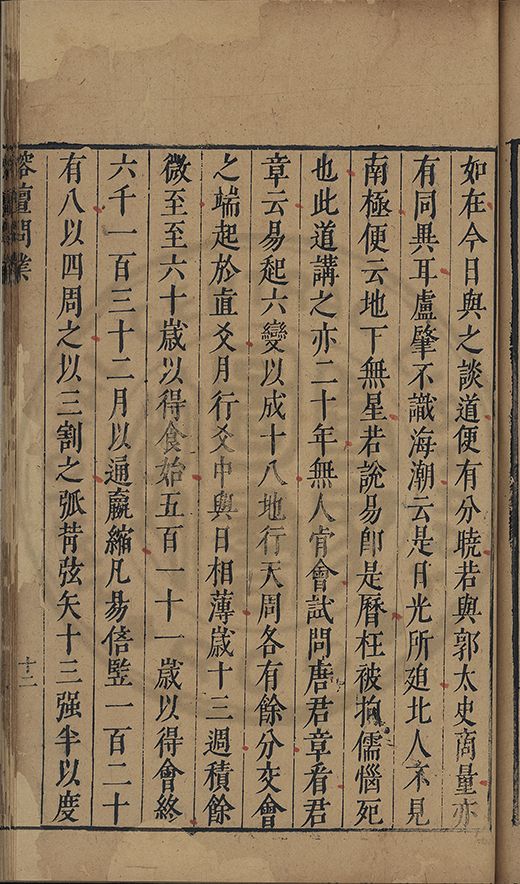 如在今日與之談道便有分曉若與郭太史商量亦
有同異耳盧肇不識海潮云是日光所廹北人不見
南極便云地下無星若說易卽是曆枉被拘儒惱死
也此道講之亦二十年無人肯會試問唐君章看君
章云易起六變以成十八地行天周各有餘分交會
之端起於直爻月行爻中與日相薄歲十三週積餘
微至至六十歲以得食始五百一十一歲以得會終
六千一百三十二月以通嬴縮凡易倍竪一百二十
有八以四周之以三割之弧背弦矢十三强半以度
榕壇問業
十二